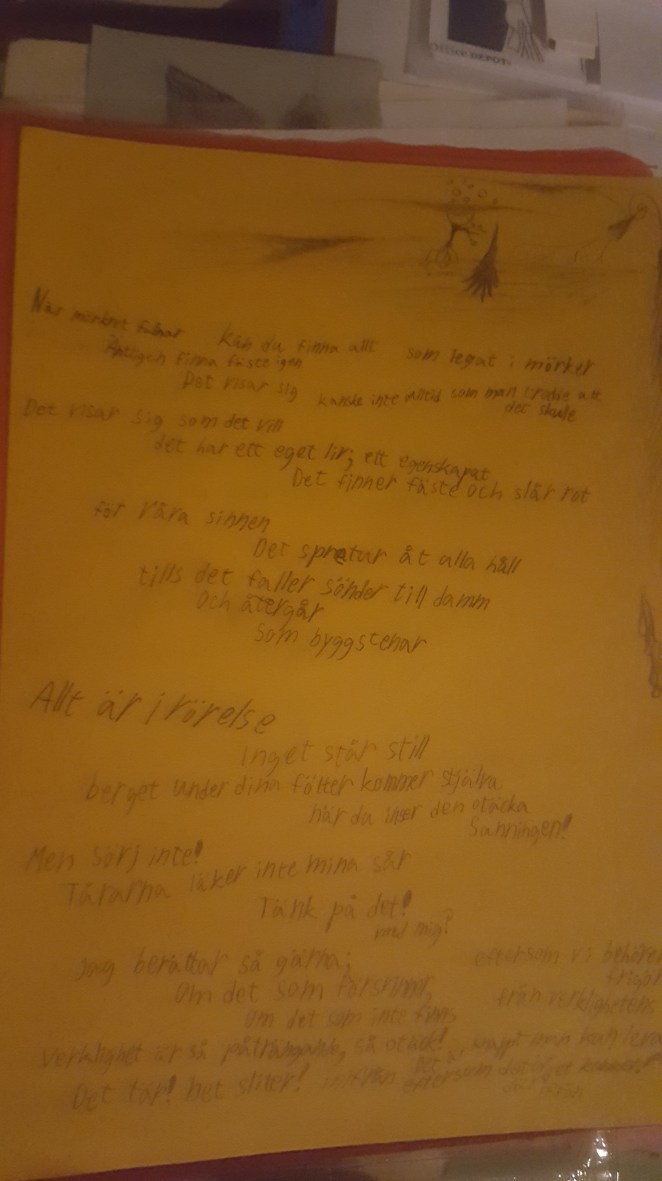 När mörkret falnar
Kan du finna allt som legat i mörker
Äntligen finna fäste igen
Det visar sig
kanske inte alltid som man trodde att
det skulle
Det visar sig som det vill
det har ett eget liv; ett egenskapat
Det finner fäste och slår rot
för våra sinnen
Det spretar åt alla håll
tills det faller sönder till damm
Och återgår
Som byggstenar
Allt är i rörelse
Inget står still
berget under dina fötter kommer stjälva
när du inser den otäcka
Sanningen!
Men Sörj inte!
Tårarna läker inte mina sår
Tänk på det!
med mig?
Jag berättar så gärna;
Om det som försvinner,
Om det som inte finns
eftersom vi behöver
från verklighetens
verklighet är så påträngande, så otäck!
Det tär! het sliter!